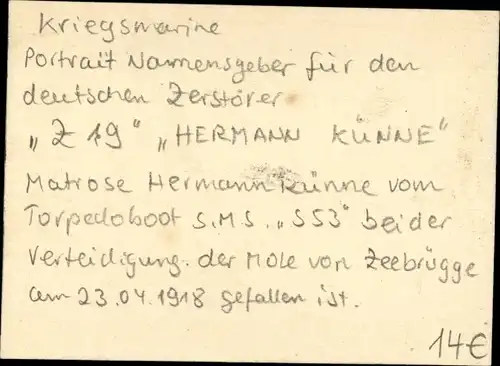 Kriegsmarine
Portrait Namensgeber für den
deutschen Zerstörer
„Z 19" „HERMANN KÜNNE"
Matrose Hermann Künne vom
Torpedoboot S.M.S. „S53" bei der
Verteidigung der Mole von Zeebrügge
am 23.04.1918 gefallen ist.
14€